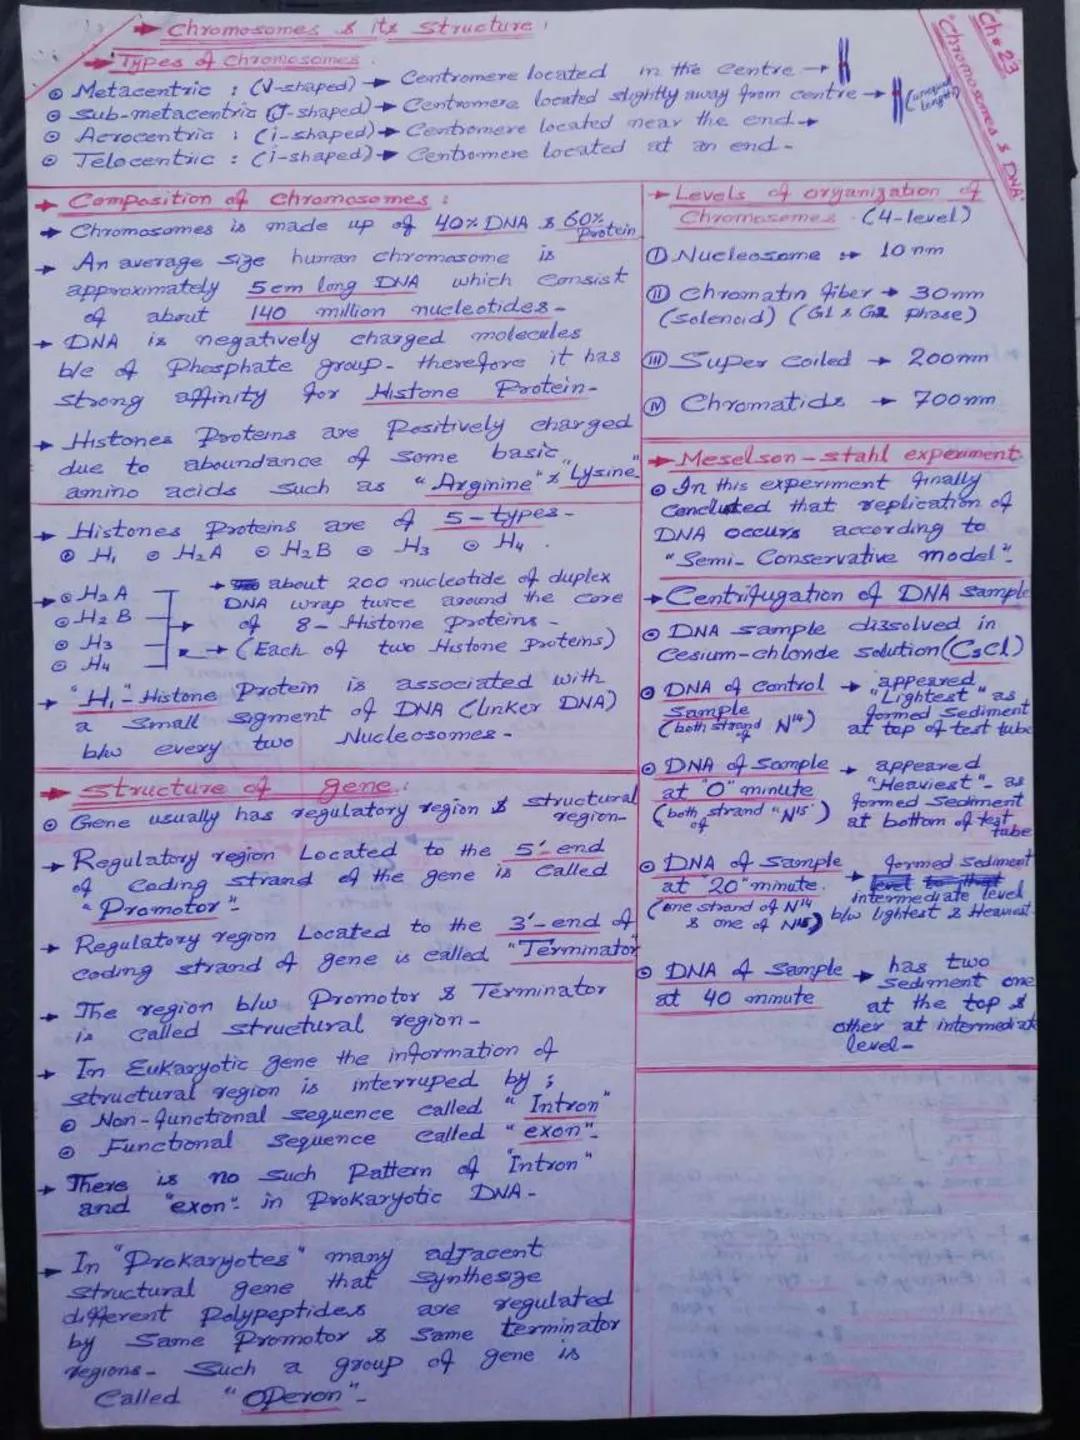 Ch # 23
"Chromosomes & DNA"
→ Chromosomes & its Structure :
→ Types of Chromosomes
⊙ Metacentric : (V-shaped) → Centromere located in the Centre →
⊙ Sub-metacentric (J-shaped) → Centromere located slightly away from centre → (unequal length)
⊙ Acrocentric : (i-shaped) → Centromere located near the end →
⊙ Telocentric : (i-shaped) → Centromere located at an end -
→ Composition of Chromosomes :
→ Chromosomes is made up of 40% DNA & 60% Protein
→ An average size human chromosome is
approximately 5cm long DNA which consist
of about 140 million nucleotides -
→ DNA is negatively charged molecules
b/c of Phosphate group - therefore it has
strong affinity for Histone Protein -
→ Histones Proteins are Positively charged
due to aboundance of some basic
amino acids such as "Arginine" & "Lysine"
→ Histones Proteins are of 5-types -
⊙ H₁ ⊙ H₂A ⊙ H₂B ⊙ H₃ ⊙ H₄ .
→ ⊙ H₂A
⊙ H₂B
⊙ H₃
⊙ H₄
→ about 200 nucleotide of duplex
DNA wrap twice around the core
of 8- Histone proteins -
→ (Each of two Histone Proteins)
→ "H₁"- Histone Protein is associated with
a small sigment of DNA (linker DNA)
b/w every two Nucleosomes -
→ Structure of gene :
⊙ Gene usually has regulatory region & structural
region-
→ Regulatory region Located to the 5'-end
of Coding strand of the gene is Called
"Promotor"-
→ Regulatory region Located to the 3'-end of
coding strand of gene is called "Terminator
→ The region b/w Promotor & Terminator
is called structural region -
→ In Eukaryotic gene the information of
structural region is interruped by ;
⊙ Non-functional sequence called "Intron"
⊙ Functional sequence called "exon"-
→ There is no such Pattern of "Intron"
and "exon"- in Prokaryotic DNA -
→ In "Prokaryotes" many adjacent
structural gene that synthesize
different Polypeptides are regulated
by Same Promotor & Same terminator
regions - Such a group of gene is
Called "Operon"-
→ Levels of organization of
Chromosomes - (4-level)
(I) Nucleosome → 10nm
(II) Chromatin fiber → 30nm
(Solenoid) (G1 & G2 phase)
(III) Super coiled → 200nm
(IV) Chromatids → 700nm
→ Meselson-stahl experiment
⊙ In this experiment finally
concluted that replication of
DNA occurs according to
"Semi-Conservative model"-
→ Centrifugation of DNA sample
⊙ DNA sample dissolved in
Cesium-chloride solution (CsCl)
⊙ DNA of control → appeared
Sample "Lightest" as
(both strand of N¹⁴) formed Sediment
at top of test tube
⊙ DNA of Sample → appeared
at "0" minute "Heaviest"- as
(both strand of "N¹⁵") formed Sediment
at bottom of test
tube
⊙ DNA of Sample → formed Sediment
at "20" minute. intermediate level
(one strand of N¹⁴ b/w lightest & Heaviest
& one of N¹⁵)
⊙ DNA of Sample → has two
at 40 minute Sediment one
at the top &
other at intermediate
level -